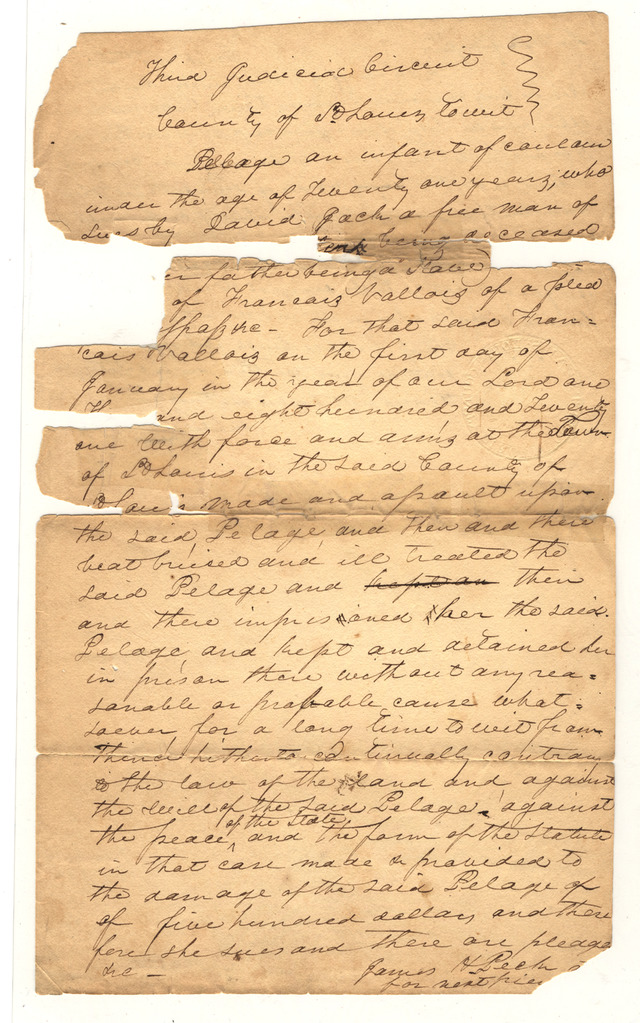 Third Judicial Circuit
County of St Louis, towit
Pelage an infant of colour
under the age of Twenty one years, who
sues by David Jack a free man of
being deceased
er father being a Slave
of Francois Vallois of a plea
of trespass &c - For that said Fran=
cois Vallois on the first day of
January in the year of our Lord one
Th and eight hundred and Twenty
one With force and arms at the Town
of St Louis in the said County of
St Louis made and assault upon
the said, Pelage, and then and there
beat bruised and ill treated the
said Pelage and kept an then
and there imprisoned her the said.
Pelage, and kept and detained her
in prison there without any rea=
sonable or probable cause what=
soever, for a long time to wit from
thence hitherto continually contrary
to the law of the land and against
the Will of the said Pelage, against
the peace of the State, and the form of the Statute
in that case made & provided to
the damage of the said Pelage of
of five hundred dollars and there
fore she sues and there are pledge
&c -
James H Peck
for next frien